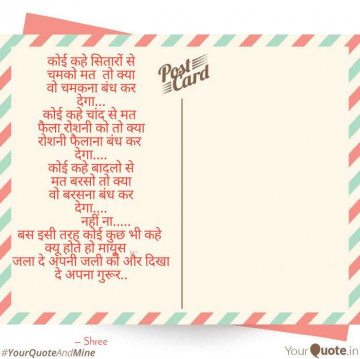 कोई कहे सितारों से
चमको मत तो क्या
वो चमकना बंध कर
देगा...
कोई कहे चांद से मत
फैला रोशनी को तो क्या
रोशनी फैलाना बंध कर
देगा....
कोई कहे बादलो से
मत बरसो तो क्या
वो बरसना बंध कर
देगा....
नहीं ना.....
बस इसी तरह कोई कुछ भी कहे
क्यू होते हो मायूस ...
जला दे अपनी जली को और दिखा
दे अपना गुरूर..
Post
Card
– Shree
#YourQuoteAndMine
YourQuote.in